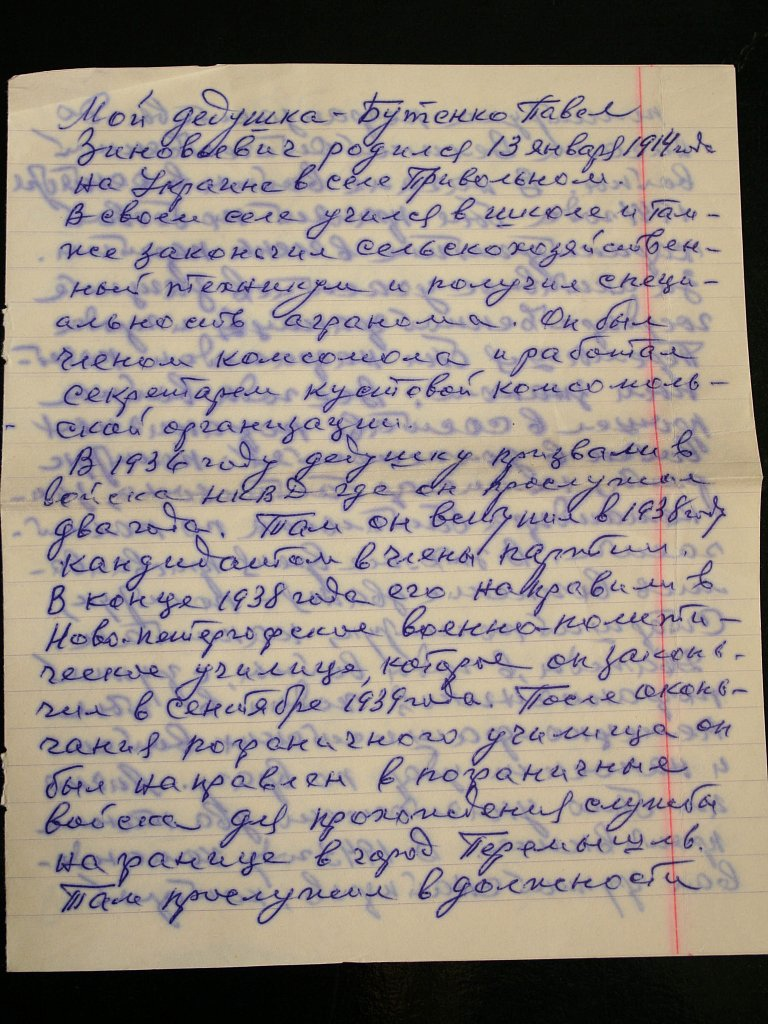 Мой дедушка - Бутенко Павел
Зиновьевич родился 13 января 1914 года
на Украине в селе Привольном.
В своем селе учился в школе и там-
же закончил сельскохозяйствен-
ный техникум и получил специ-
альность агранома. Он был
членом комсомола и работал
секретарем кустовой комсомоль-
ской организации.
В 1936 году дедушку призвали в
войска НКВД где он прослужил
два года. Там он вступил в 1938 году
кандидатом в члены партии.
В конце 1938 года его направили в
Ново-петергофское военно-полити-
ческое училище, которое он закон-
чил в сентябре 1939 года. После окон-
чания пограничного училища он
был направлен в пограничные
войска для прохождения службы
на границе в город Перемышль.
Там прослужил в должности